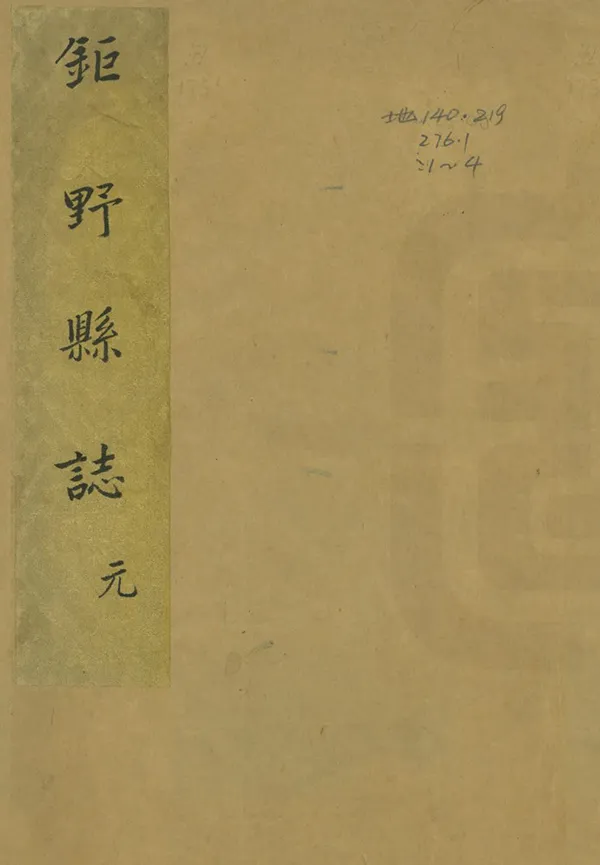 鉅野縣誌
元
地140.219
276.1
:1~4